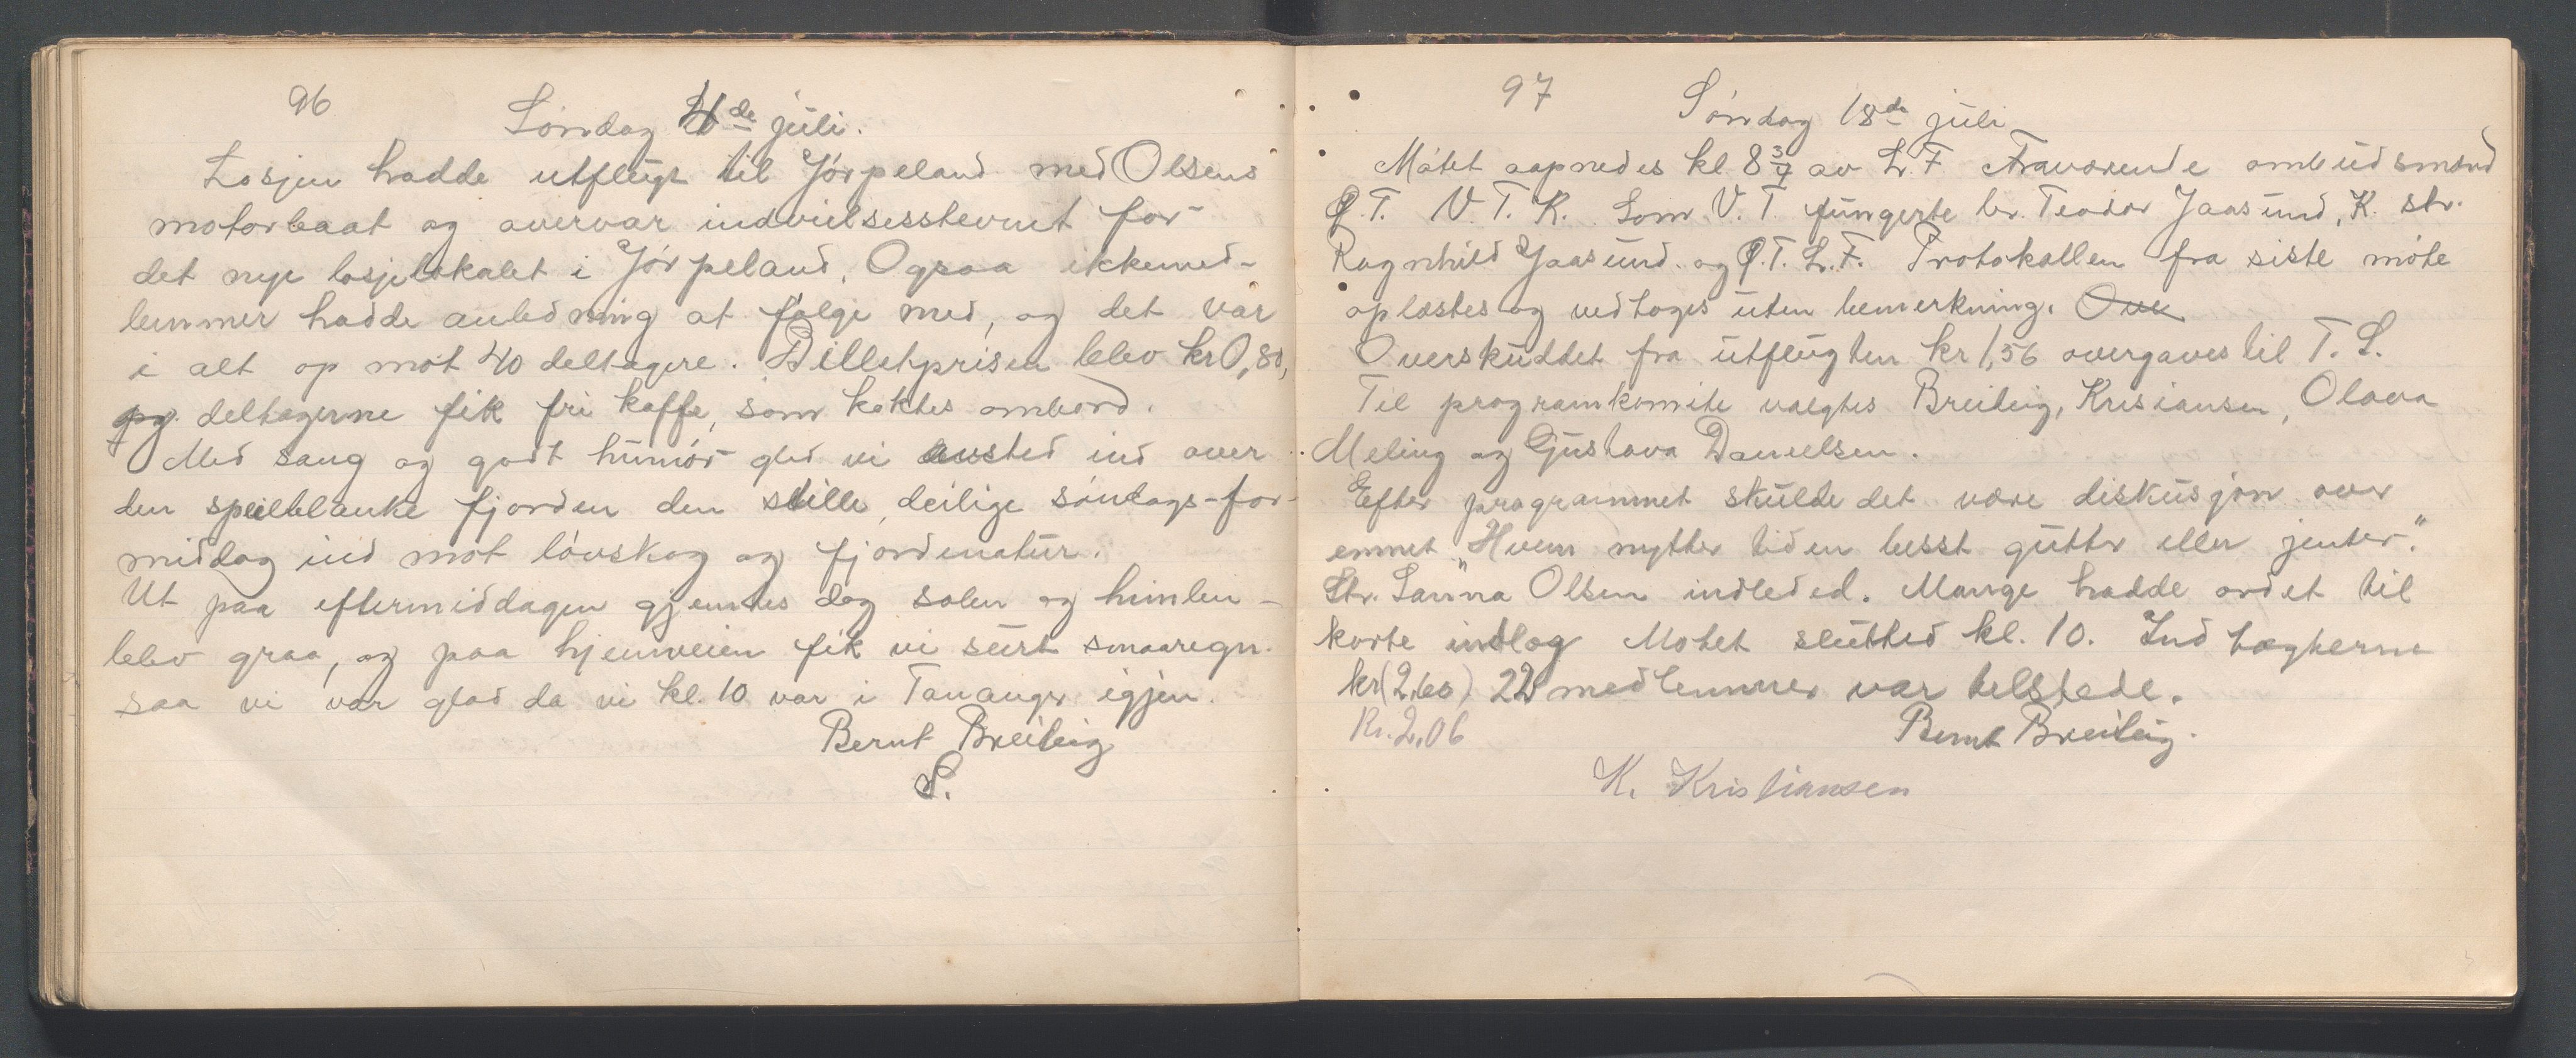 96
Søndag 4de juli.
Losjen hadde utflugt til Jørpeland med Olsens
motorbaat og overvar indvielsesstevnet for
det nye losjelokalet i Jørpeland. Ogsaa ikkemed-
lemmer hadde anledning at følge med, og det var
i alt op mot 40 deltagere. Billetprisen blev kr 0,80,
og deltagerne fik fri kaffe, som koktes ombord.
Med sang og godt humør gled vi avsted ind over
den speilblanke fjorden den stille, deilige søndags-for-
middag ind mot løvskog og fjordnatur.
Ut paa eftermiddagen gjemtes dog solen og himlen
blev graa, og paa hjemveien fik vi surt smaaregn.
saa vi var glad da vi kl. 10 var i Tananger igjen.
Bernt Breiteig
S.
97
Søndag 18de juli
Møtet aapnedes kl 8 3/4 av L. F. Fraværende ombudsmænd
Q.T. V.T. K. Som V.T. fungerte br. Teodor Jaasund, K. str.
Ragnhild Jaasund. og Q.T. L.F. Protokollen fra siste møte
oplæstes og vedtoges uten bemerkning. Ove
Overskuddet fra utflugten kr 1,56 overgaves til T. S.
Til programkomite valgtes Breiteig, Krisiansen, Olava
Meling og Gustava Danielsen.
Efter programmet skulde det være diskusjon over
emnet "Hvem nytter tiden besst gutter eller jenter."
Str. Sanna Olsen indleded. Mange hadde ordet til
korte indlæg Møtet slutted kl. 10. Indtægterne
kr (2,60) 22 medlemmer var tilstede.
Kr. 2,06
Bernt Breiteig.
K. Kristiansen